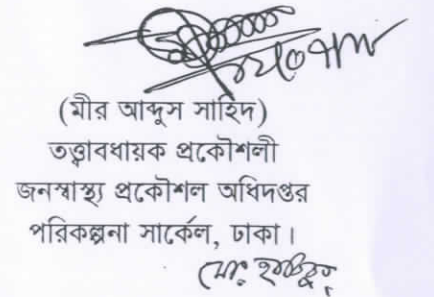 (মীর আব্দুস সাহিদ)
তত্ত্বাবধায়ক প্রকৌশলী
জনস্বাস্থ্য প্রকৌশল অধিদপ্তর
পরিকল্পনা সার্কেল, ঢাকা।
মোঃ